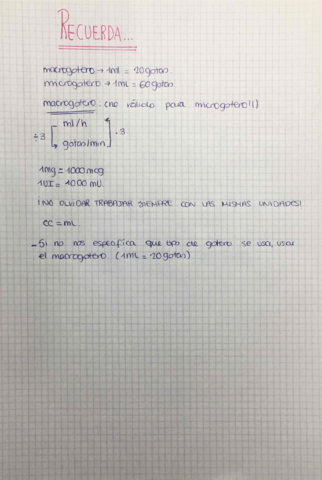 RECUERDA...
macrogotero → 1ml = 20gotas.
microgotero → 1mL = 60gotas
macrogotero. (no válido para microgotero!!)
ml/h
÷3 .3
gotas/min
1mg = 1000mcg
1UI = 1000 mU.
¡NO OLVIDAR TRABAJAR SIEMPRE CON LAS MISMAS UNIDADES!
CC = mL.
- Si no nos especifica que tipo de gotero se usa, usar
el macrogotero (1mL = 20gotas)